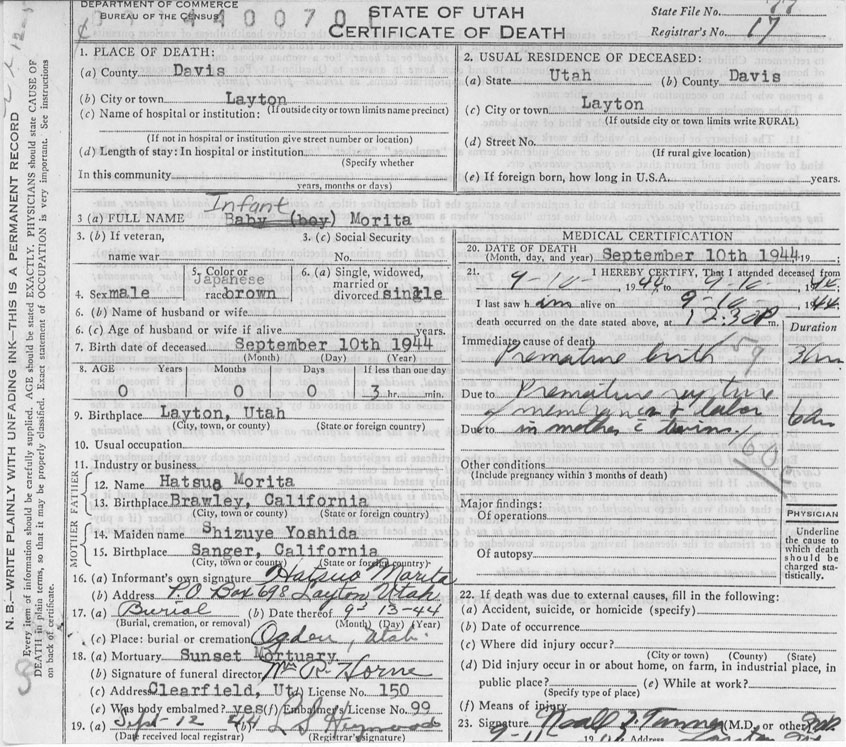 DEPARTMENT OF COMMERCE
BUREAU OF THE CENSUS
STATE OF UTAH
CERTIFICATE OF DEATH
State File No. 77
Registrar's No. 17
N. B.—WRITE PLAINLY WITH UNFADING INK—THIS IS A PERMANENT RECORD
Every item of information should be carefully supplied. AGE should be stated EXACTLY. PHYSICIANS should state CAUSE OF
DEATH in plain terms, so that it may be properly classified. Exact statement of OCCUPATION is very important. See instructions
on back of certificate.
1. PLACE OF DEATH:
(a) County Davis
(b) City or town Layton
(If outside city or town limits name precinct)
(c) Name of hospital or institution:
(If not in hospital or institution give street number or location)
(d) Length of stay: In hospital or institution
(Specify whether
In this community
years, months or days)
2. USUAL RESIDENCE OF DECEASED:
(a) State Utah (b) County Davis
(c) City or town Layton
(If outside city or town limits write RURAL)
(d) Street No.
(If rural give location)
(e) If foreign born, how long in U.S.A. years.
Infant
3 (a) FULL NAME Baby (boy) Morita
3. (b) If veteran,
name war
3. (c) Social Security
No.
4. Sex male
5. Color or
Japanese
race brown
6. (a) Single, widowed,
married or
divorced single
6. (b) Name of husband or wife
6. (c) Age of husband or wife if alive years.
7. Birth date of deceased September 10th 1944
(Month) (Day) (Year)
8. AGE Years Months Days If less than one day
0 0 0 3 hr. min.
9. Birthplace Layton, Utah
(City, town, or county) (State or foreign country)
10. Usual occupation
11. Industry or business
FATHER
12. Name Hatsuo Morita
13. Birthplace Brawley, California
(City, town or county) (State or foreign country)
MOTHER
14. Maiden name Shizuye Yoshida
15. Birthplace Sanger, California
(City, town or county) (State or foreign country)
16. (a) Informant's own signature Hatsuo Morita
(b) Address P.O Box 698 Layton Utah
17. (a) Burial (b) Date thereof 9-13-44
(Burial, cremation, or removal) (Month) (Day) (Year)
(c) Place: burial or cremation Ogden, Utah.
18. (a) Mortuary Sunset Mortuary
(b) Signature of funeral director R. Horne
(c) Address Clearfield, Ut (d) License No. 150
(e) Was body embalmed? yes (f) Embalmer's License No. 99
19. (a) Sept-12 (b)
(Date received local registrar) (Registrar's signature)
MEDICAL CERTIFICATION
20. DATE OF DEATH
(Month, day, and year) September 10th 1944 19
21. I HEREBY CERTIFY, That I attended deceased from
9-10- 1944, to 9-10- 1944.
I last saw him alive on 9-10- 1944
death occurred on the date stated above, at 12:30 P m.
Duration
Immediate cause of death
Premature birth 159 3 hr
Due to Premature rupture
of membranes & labor
6 hr
Due to in mother c twins.
Other conditions
(Include pregnancy within 3 months of death)
Major findings:
Of operations
Of autopsy
PHYSICIAN
Underline
the cause to
which death
should be
charged sta-
tistically.
22. If death was due to external causes, fill in the following:
(a) Accident, suicide, or homicide (specify)
(b) Date of occurrence
(c) Where did injury occur?
(City or town) (County) (State)
(d) Did injury occur in or about home, on farm, in industrial place, in
public place? (e) While at work?
(Specify type of place)
(f) Means of injury
23. Signature Noall Z. Tanner (M.D. or other) M.D.
9-11 19 Address Layton